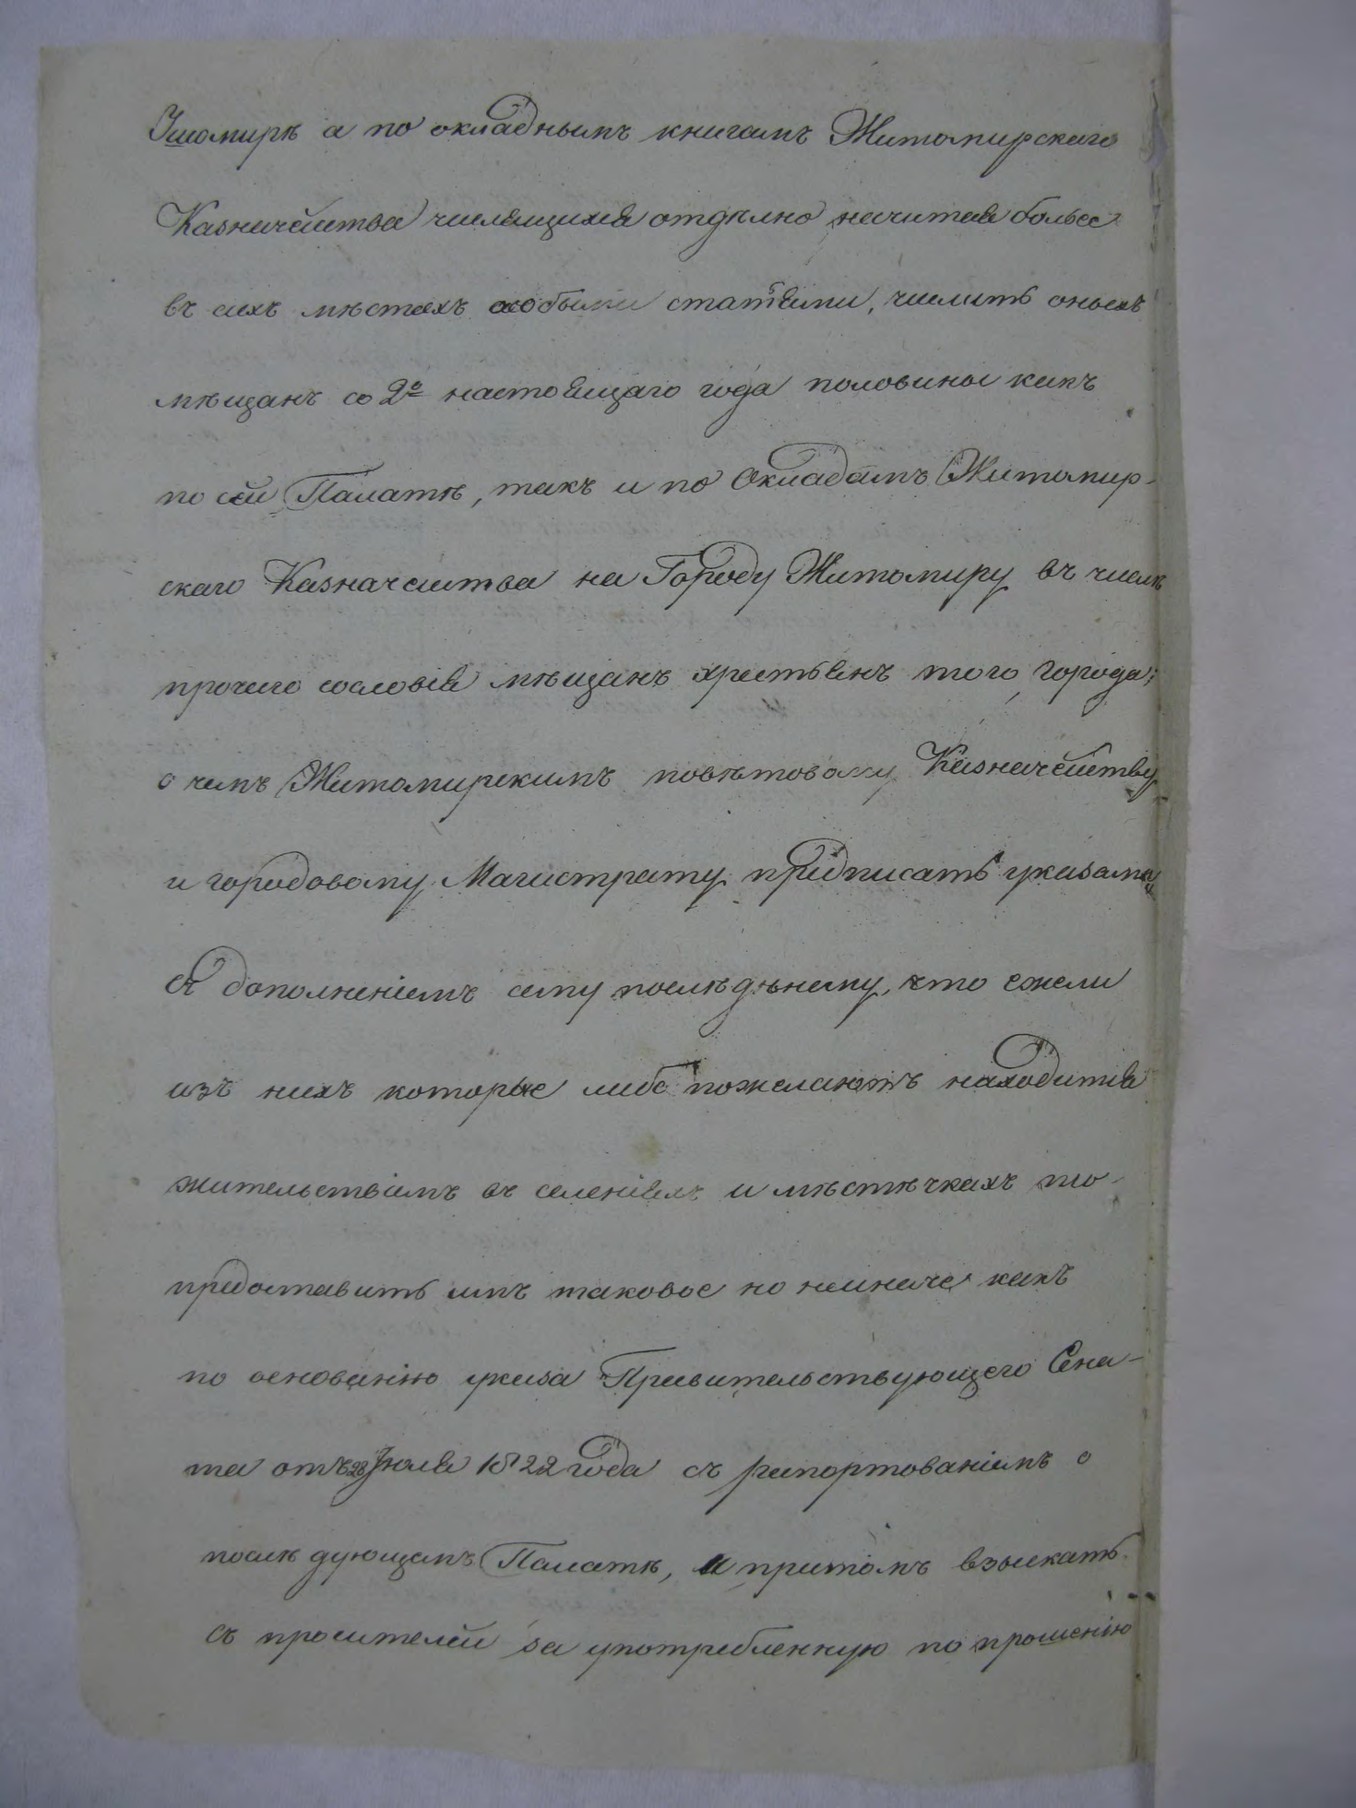 Ушомирѣ а по окладнымъ книгамъ Житомирскаго
Казначейства числящихся отдѣлно несчитая болѣе
въ сихъ мѣстахъ особыми статьями, числить оныхъ
мѣщанъ со 2й настоящаго года половины какъ
по сей Палатѣ, такъ и по Окладамъ Житомир-
скаго Казначейства на Городу Житомиру въ числѣ
прочего сословія мѣщанъ хрестьянъ того города;
о чемъ Житомирскимъ повѣтовому Казначейству
и городовому Магистрату предписать указами
съ дополненіемъ сему послѣдьнему, что ежели
изъ нихъ которые либо пожелаютъ находится
жительствамъ въ селеніяхъ и мѣстѣчкахъ то-
предоставить имъ таковое но неиначе какъ
по основанію указа Правительствующего Сена-
та отъ 28 Іюля 1822 года съ рапортованіемъ о
послѣдующемъ Палатѣ, и притомъ взыскать
съ просителей за употребленную по прошенію